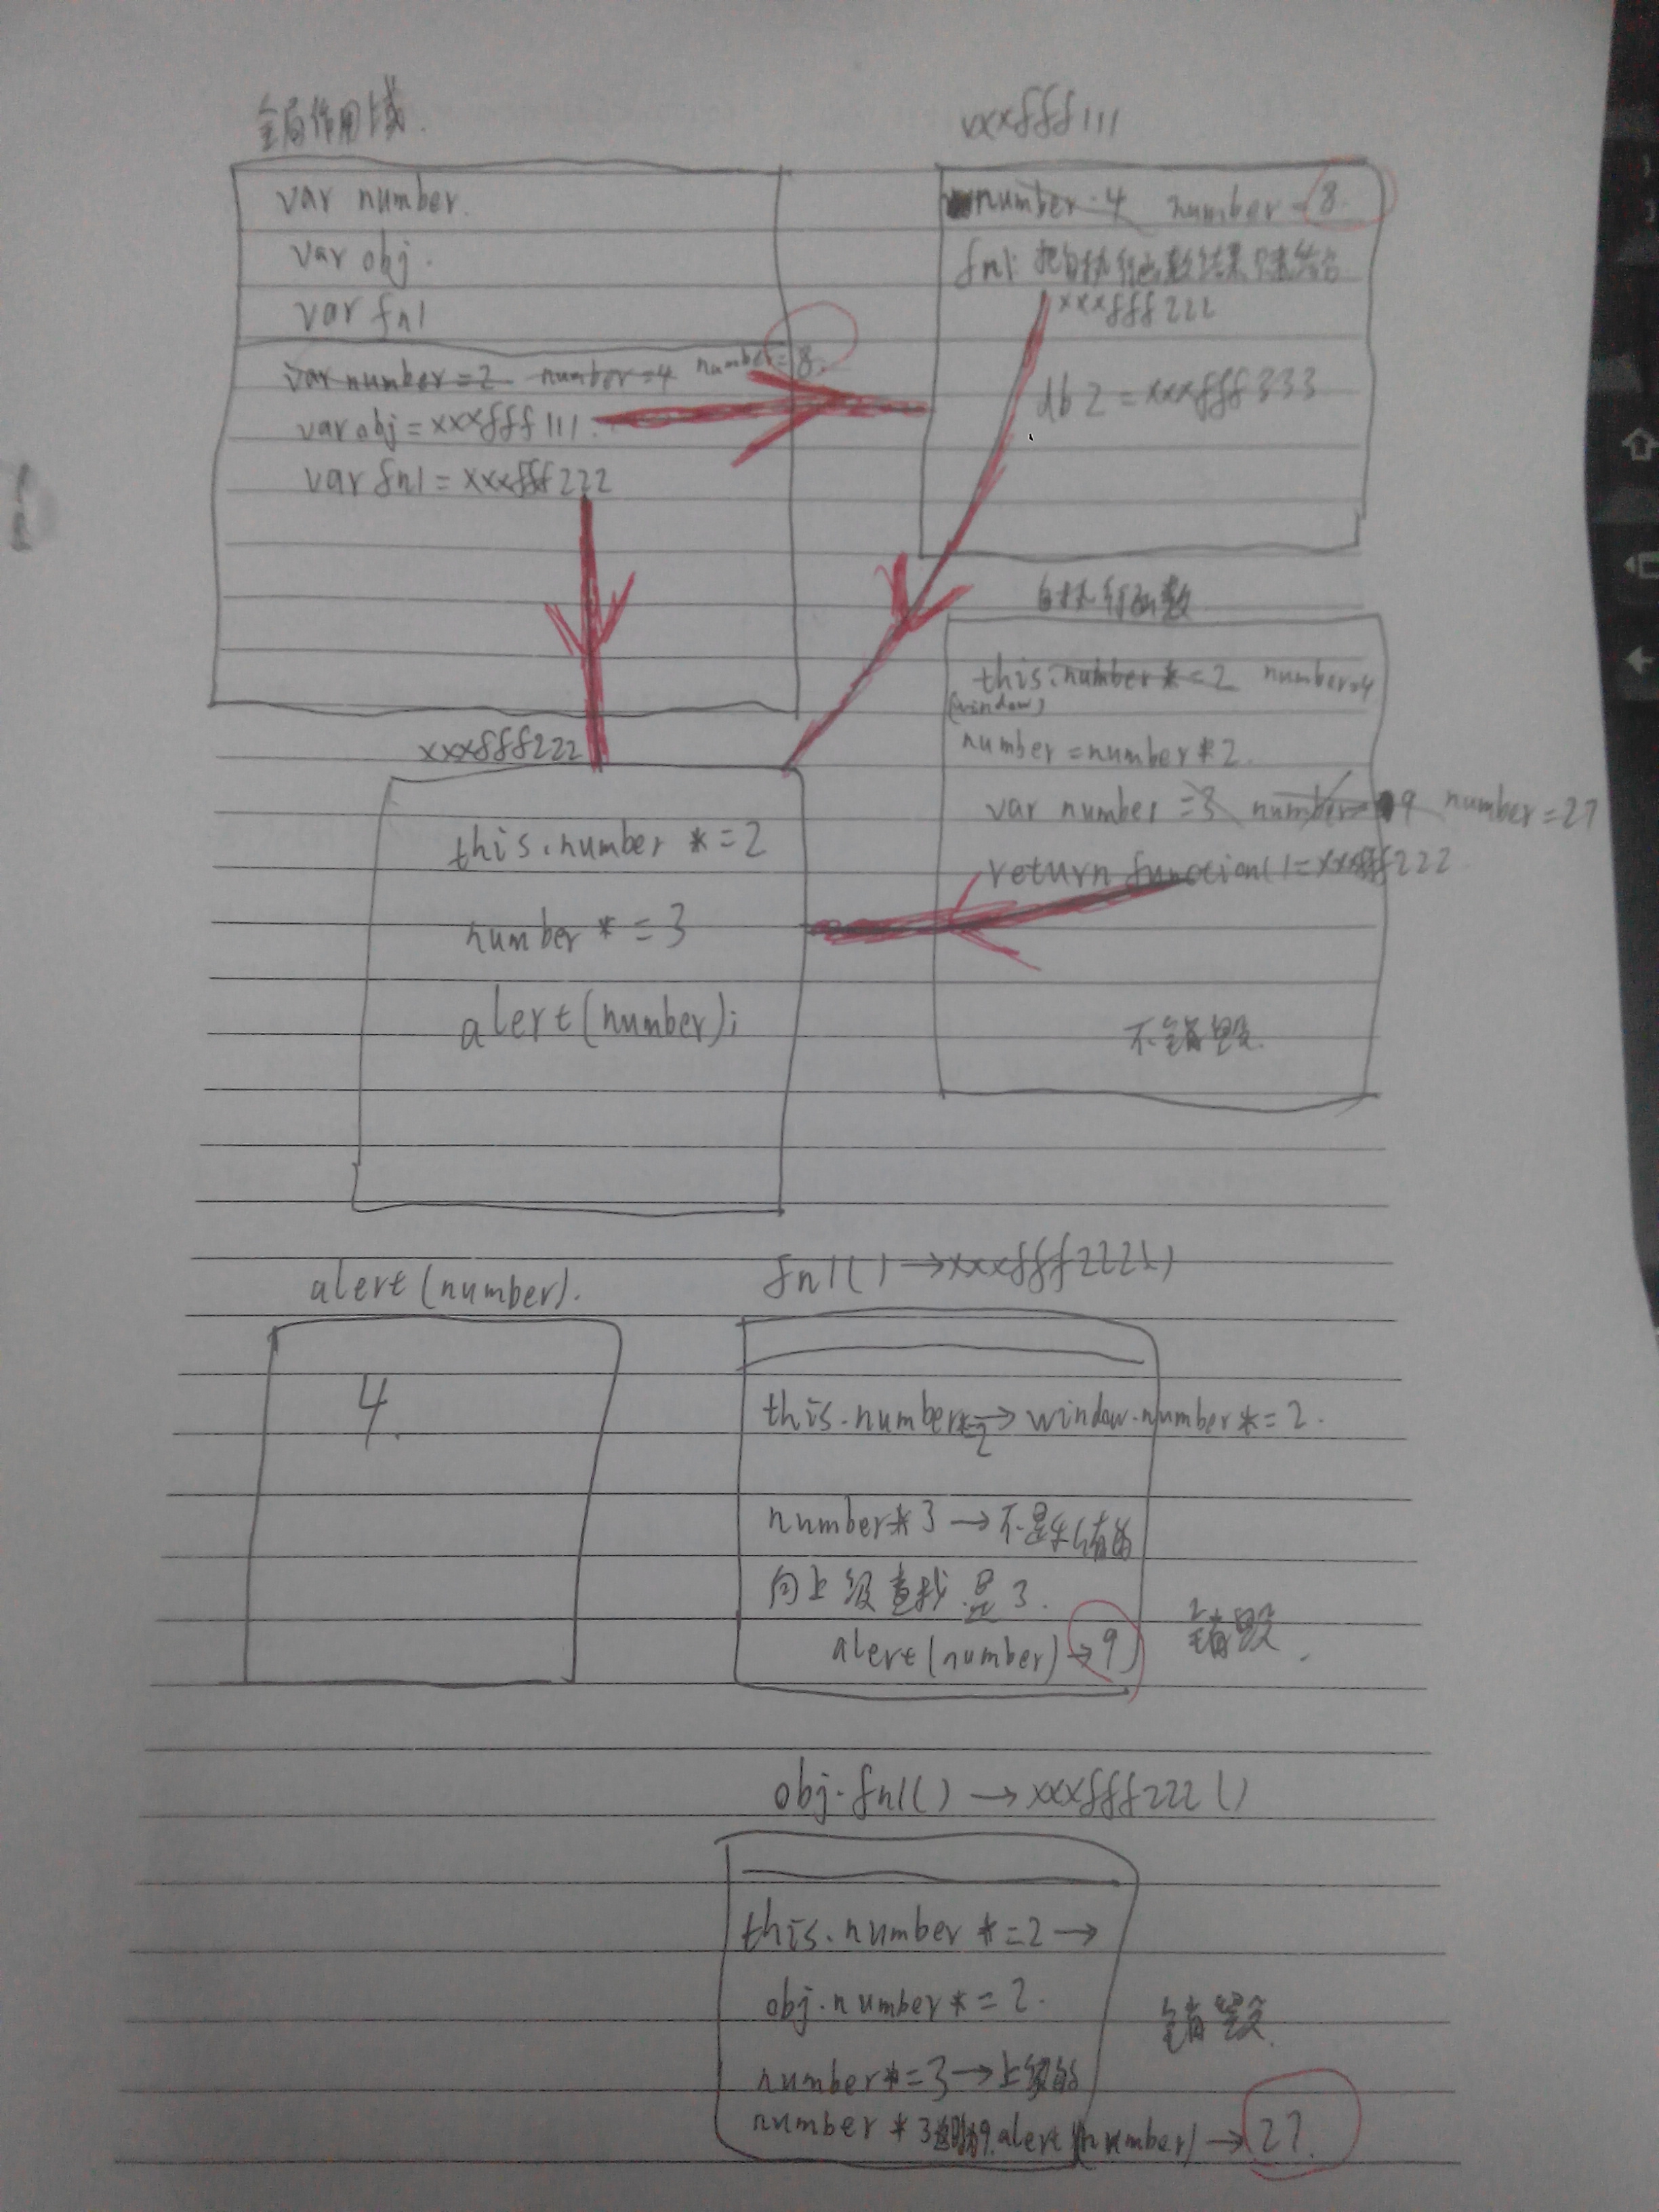 全局作用域.
var number.
var obj.
var fn1
var number=2 number=4 number=8.
var obj=xxxfff111.
var fn1=xxxfff222
xxxfff111
number=4 number=8.
fn1: 把自执行函数结果
xxxfff222
db2=xxxfff333
自执行函数
this.number*=2 number=4
(window)
number=number*2.
var number=3 number=9 number=27
return function()=xxxfff222
不销毁.
xxxfff222
this.number *=2
number *=3
alert(number);
alert(number).
4.
fn1()→xxxfff222()
this.number*=2→window.number*=2.
number*3→不是私有的
向上级查找是3.
alert(number)→9
销毁.
obj.fn1()→xxxfff222()
this.number *=2→
obj.number*=2.
number*=3→上级的
销毁.
number*3 9.alert(number)→27.